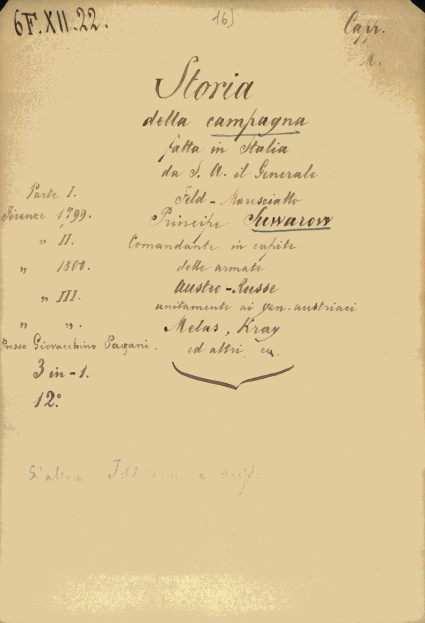 6F.XII.22.
16)
Capr.
1.
Storia
della campagna
fatta in Italia
da S. A. il Generale
Feld-Maresciallo
Principe Suwarow
Comandante in capite
delle armate
Austro-Russe
unitamente ai gen. austriaci
Melas, Kray
ed altri, ec.
Parte I.
Firenze 1799.
" II.
" 1800.
" III.
" ".
Presso Giovacchino Pagani.
3 in-1.
12°.
L'altra